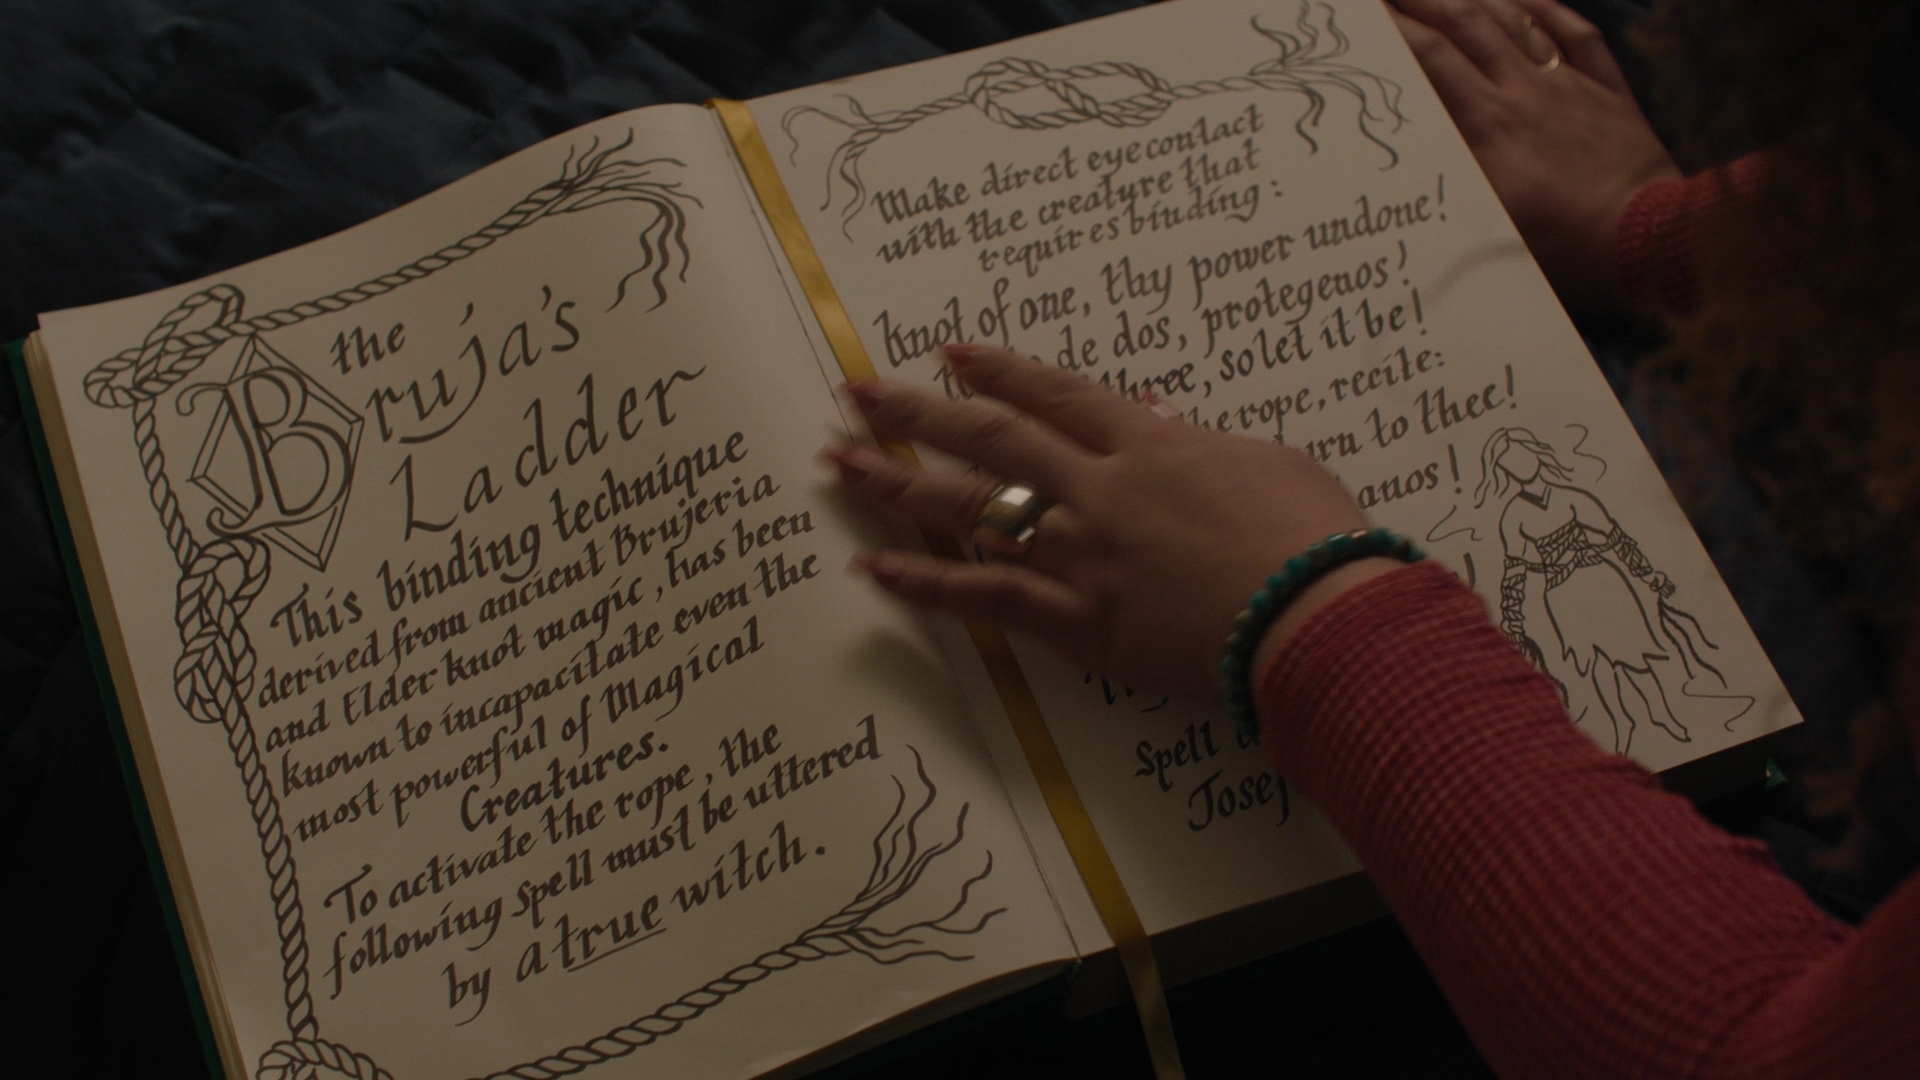 the
Bruja's
Ladder
This binding technique
derived from ancient Brujeria
and Elder knot magic, has been
known to incapacitate even the
most powerful of Magical
Creatures.
To activate the rope, the
following spell must be uttered
by a true witch.
Make direct eye contact
with the creature that
requires binding:
knot of one, thy power undone!
de dos, protegenos!
three, so let it be!
the rope, recite:
to thee!
Spell